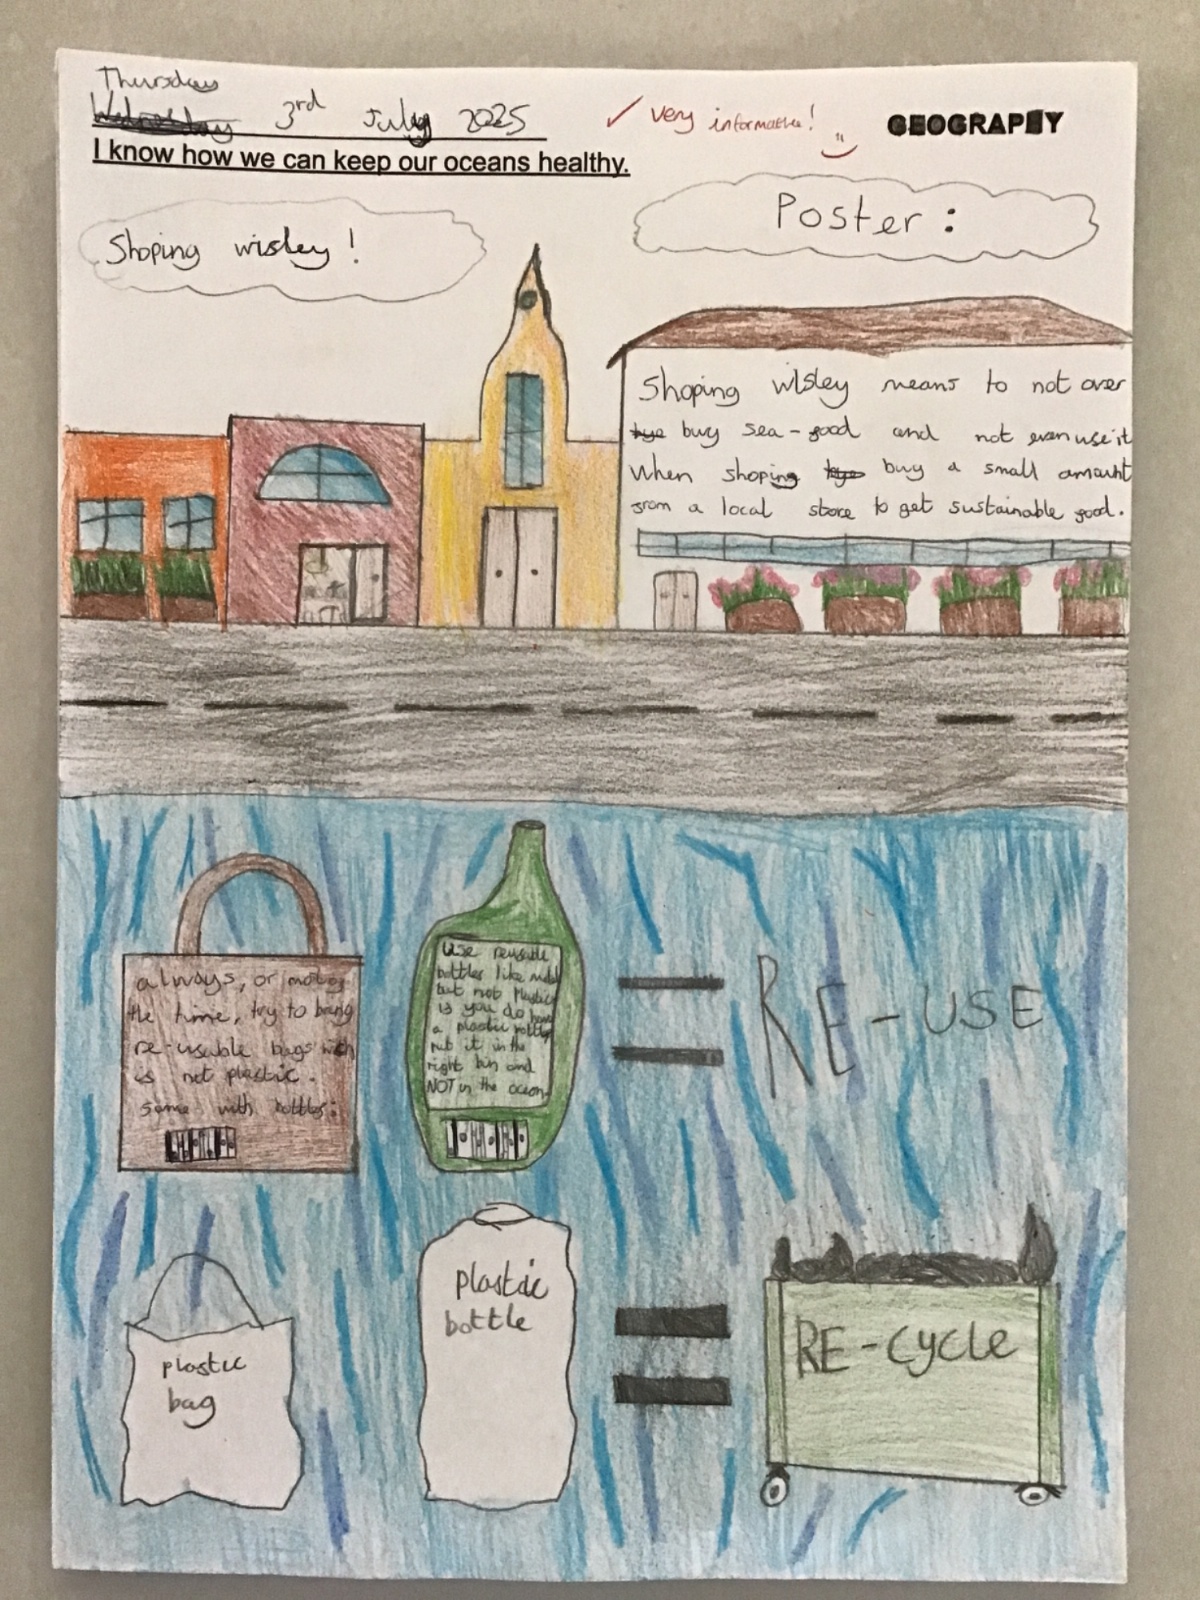 Thursday
Wednesday 3rd July 2025
✓ very informative!
GEOGRAPHY
I know how we can keep our oceans healthy.
Shoping wisley!
Poster:
Shoping wisley means to not over
buy sea-food and not even use it
When shoping buy a small amount
from a local store to get sustainable food.
always, or most of
the time, try to bring
re-usable bags wich
is not plastic.
same with bottles:
Use reusable
bottles like metal
but not Plastic
if you do have
a plastic bottle
put it in the
right bin and
NOT in the ocean.
RE-USE
plastic
bag
plastic
bottle
RE-cycle